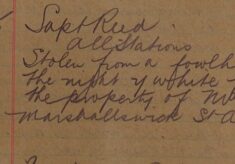 Supt Reed.
All Stations
Stolen from a fowlh
the night of white
the property of M
Marshallswick St A